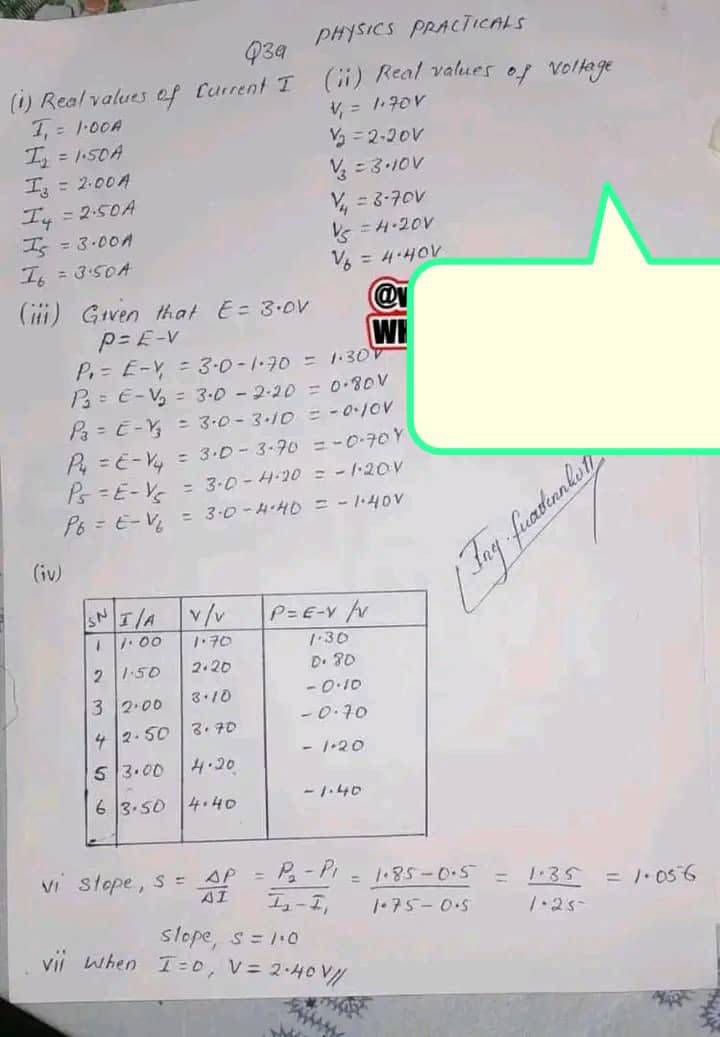 PHYSICS PRACTICALS
Q3a
(i) Real values of Current I
I₁ = 1.00A
I₂ = 1.50A
I₃ = 2.00A
I₄ = 2.50A
I₅ = 3.00A
I₆ = 3.50A
(ii) Real values of voltage
V₁ = 1.70V
V₂ = 2.20V
V₃ = 3.10V
V₄ = 3.70V
V₅ = 4.20V
V₆ = 4.40V
(iii) Given that E = 3.0V
P = E-V
P₁ = E-V₁ = 3.0-1.70 = 1.30V
P₂ = E-V₂ = 3.0 - 2.20 = 0.80V
P₃ = E-V₃ = 3.0-3.10 = -0.10V
P₄ = E-V₄ = 3.0-3.70 = -0.70V
P₅ = E-V₅ = 3.0-4.20 = -1.20V
P₆ = E-V₆ = 3.0-4.40 = -1.40V
Ing.
(iv)
SN I/A V/V P=E-V/V
1 1.00 1.70 1.30
2 1.50 2.20 0.80
3 2.00 3.10 -0.10
4 2.50 3.70 -0.70
5 3.00 4.20 -1.20
6 3.50 4.40 -1.40
vi slope, s = ΔP/ΔI = P₂-P₁/I₂-I₁ = 1.85-0.5/1.75-0.5 = 1.35/1.25 = 1.056
slope, s = 1.0
vii When I=0, V= 2.40V//